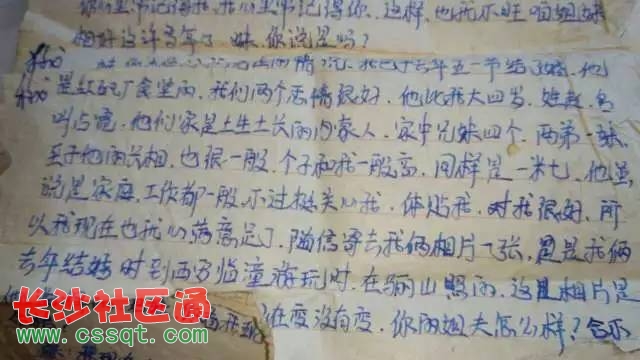 相好这许多年了 妹,你说是吗?
我已于去年五一节结了婚.他
厂食堂的.我们两个感情很好.他比我大四岁.姓赵.名
叫 他们家是土生土长的 人.家中兄妹四个.两弟一妹,
至于他的长相.也很一般.个子和我一般高.同样是一米七.他虽
说是家庭.工作都一般.不过挺关心我.体贴我.对我很好.所
以我现在也就心满意足了.随信寄去我俩相片一张,是我俩
去年结婚时到西安临潼游玩时.在骊山照的.这是相片是
在变没有变.你的姐夫怎么样?合不
长沙社区通
www.cssqt.com